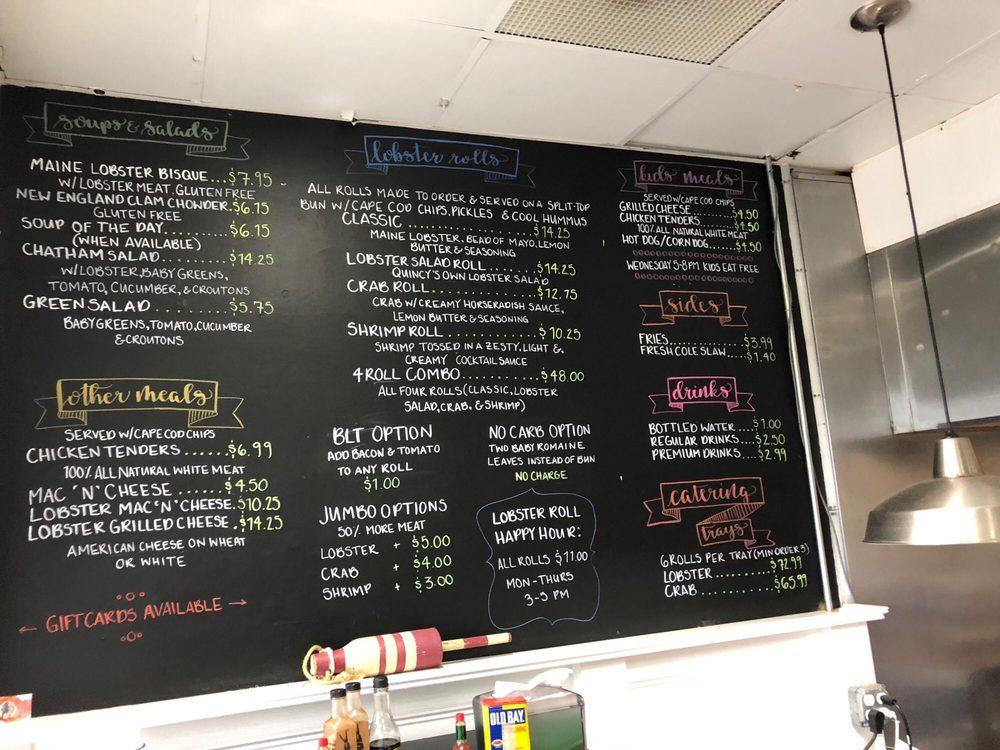 soups & salads
MAINE LOBSTER BISQUE...$7.95
W/LOBSTER MEAT. GLUTEN FREE
NEW ENGLAND CLAM CHOWDER.$6.15
GLUTEN FREE
SOUP OF THE DAY..........$6.15
(WHEN AVAILABLE)
CHATHAM SALAD.........$14.25
W/LOBSTER, BABY GREENS,
TOMATO, CUCUMBER, & CROUTONS
GREEN SALAD..........$5.75
BABY GREENS, TOMATO, CUCUMBER
& CROUTONS
other meals
SERVED W/CAPE COD CHIPS
CHICKEN TENDERS......$6.99
100% ALL NATURAL WHITE MEAT
MAC "N" CHEESE......$4.50
LOBSTER MAC "N" CHEESE.$10.25
LOBSTER GRILLED CHEESE.$14.25
AMERICAN CHEESE ON WHEAT
OR WHITE
← GIFT CARDS AVAILABLE →
lobster rolls
ALL ROLLS MADE TO ORDER & SERVED ON A SPLIT-TOP
BUN W/CAPE COD CHIPS, PICKLES & COOL HUMMUS
CLASSIC.................$14.25
MAINE LOBSTER, BEAD OF MAYO, LEMON
BUTTER & SEASONING
LOBSTER SALAD ROLL......$14.25
QUINCY'S OWN LOBSTER SALAD
CRAB ROLL...............$12.75
CRAB W/CREAMY HORSERADISH SAUCE,
LEMON BUTTER & SEASONING
SHRIMP ROLL.............$10.25
SHRIMP TOSSED IN A ZESTY, LIGHT &
CREAMY COCKTAIL SAUCE
4 ROLL COMBO...........$48.00
ALL FOUR ROLLS (CLASSIC, LOBSTER
SALAD, CRAB, & SHRIMP)
BLT OPTION
ADD BACON & TOMATO
TO ANY ROLL
$1.00
NO CARB OPTION
TWO BABY ROMAINE
LEAVES INSTEAD OF BUN
NO CHARGE
JUMBO OPTIONS
50% MORE MEAT
LOBSTER + $5.00
CRAB + $4.00
SHRIMP + $3.00
LOBSTER ROLL
HAPPY HOUR:
ALL ROLLS $11.00
MON-THURS
3-5 PM
kids meals
SERVED W/CAPE COD CHIPS
GRILLED CHEESE.......$4.50
CHICKEN TENDERS.......$4.50
100% ALL NATURAL WHITE MEAT
HOT DOG/CORN DOG....$4.50
WEDNESDAY 5-8PM KIDS EAT FREE
sides
FRIES...............$3.99
FRESH COLE SLAW....$1.40
drinks
BOTTLED WATER....$1.00
REGULAR DRINKS...$2.50
PREMIUM DRINKS....$2.99
catering
trays
6 ROLLS PER TRAY (MIN ORDER 3)
LOBSTER..........$72.99
CRAB............$65.99
OLD BAY